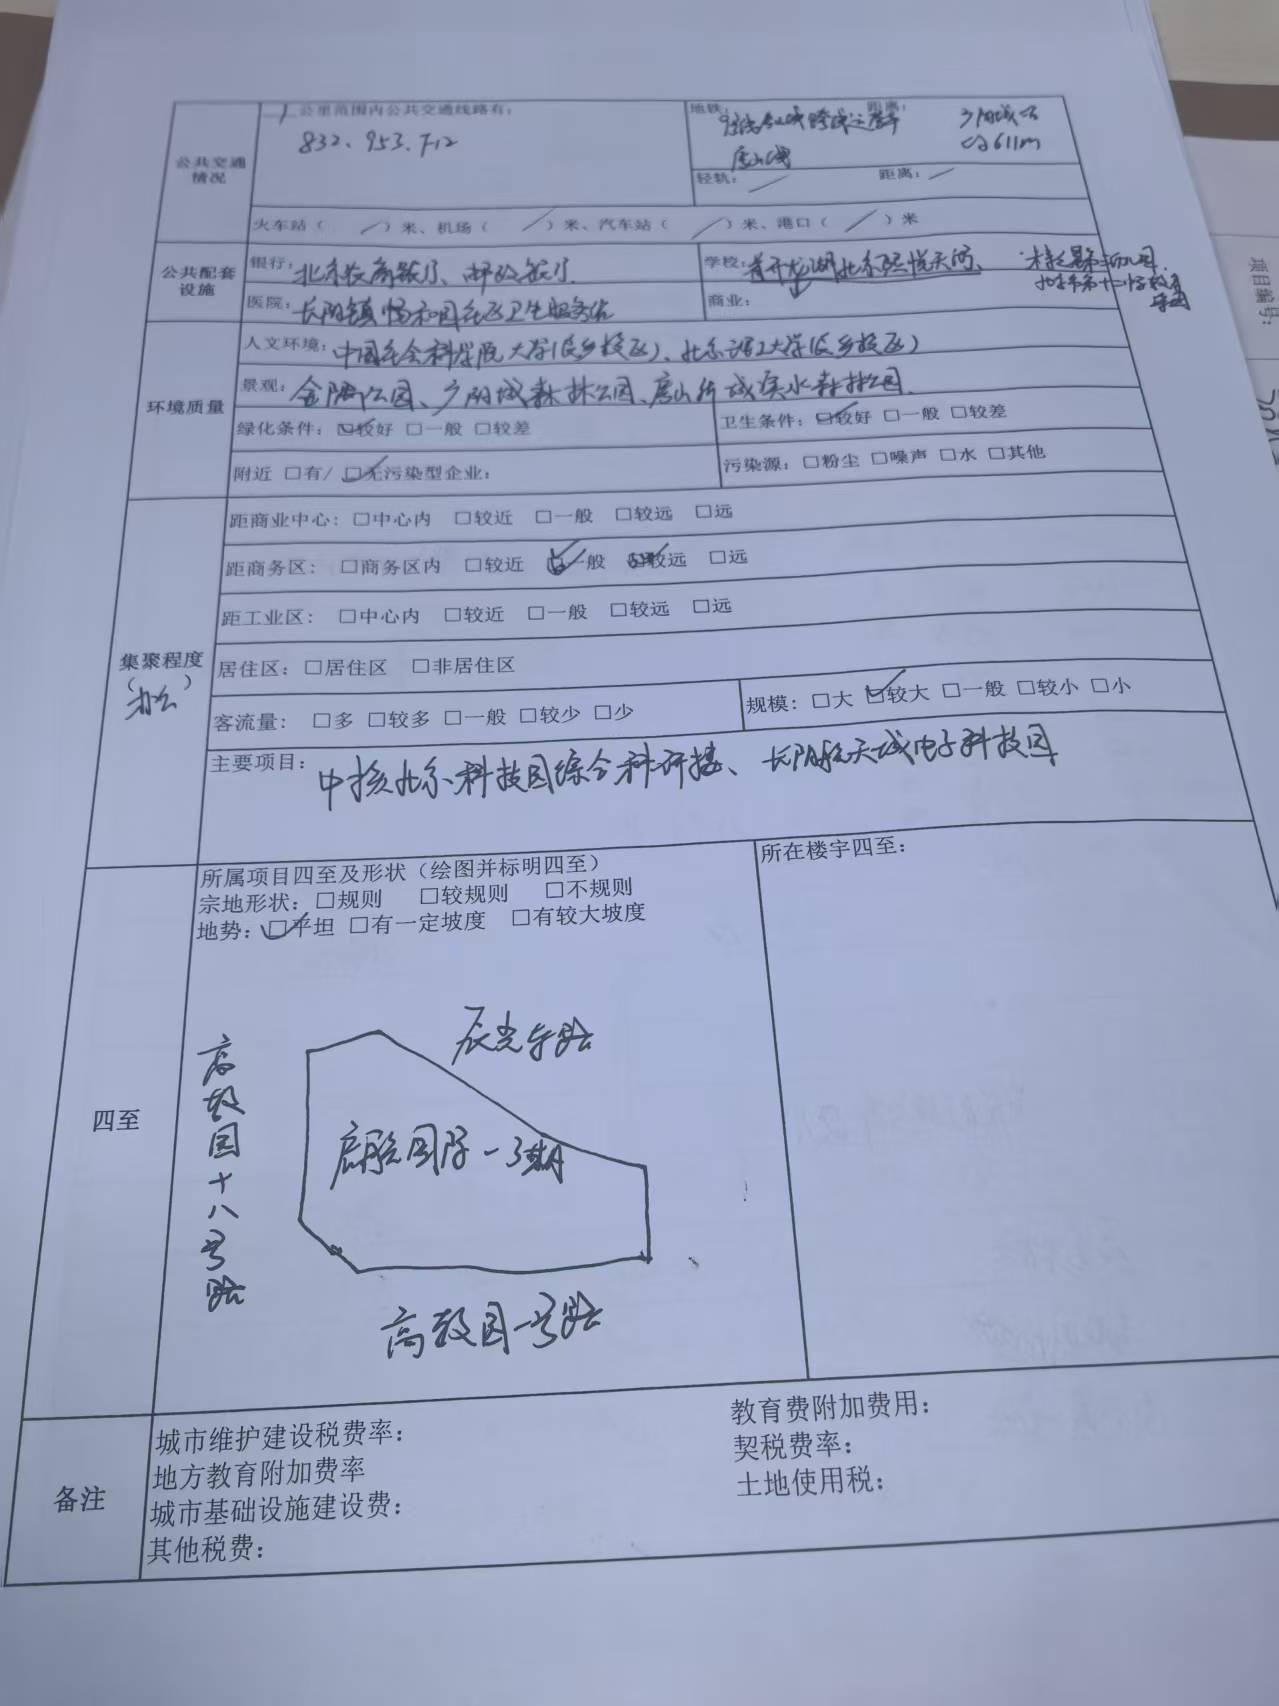 1 公里范围内公共交通线路有：
832、953、F12
地铁： 距离：
房山线
约611m
公共交通
情况
轻轨：／ 距离：／
火车站（ ／ ）米、机场（ ／ ）米、汽车站（ ／ ）米、港口（ ／ ）米
公共配套
设施
银行：北京农商银行、邮政银行
学校：首开龙湖 北京熙悦天街
医院：长阳镇 社区卫生服务站
商业：
环境质量
人文环境：中国社会科学院大学(良乡校区)、北京理工大学(良乡校区)
景观：公园、广阳城森林公园、房山 滨水森林公园
绿化条件：☑较好 □一般 □较差
卫生条件：☑较好 □一般 □较差
附近 □有/ ☑无污染型企业：
污染源：□粉尘 □噪声 □水 □其他
集聚程度
（办公）
距商业中心：□中心内 □较近 □一般 □较远 □远
距商务区：□商务区内 □较近 ☑一般 较远 □远
距工业区：□中心内 □较近 □一般 □较远 □远
居住区：□居住区 □非居住区
客流量：□多 □较多 □一般 □较少 □少
规模：□大 ☑较大 □一般 □较小 □小
主要项目：中核北京科技园综合科研楼、长阳航天城电子科技园
四至
所属项目四至及形状（绘图并标明四至）
宗地形状：□规则 □较规则 □不规则
地势：☑平坦 □有一定坡度 □有较大坡度
所在楼宇四至：
辰光东路
高教园十八号路
启航国际一3期
高教园一号路
备注
城市维护建设税费率：
教育费附加费用：
地方教育附加费率
契税费率：
城市基础设施建设费：
土地使用税：
其他税费：
项目编号：